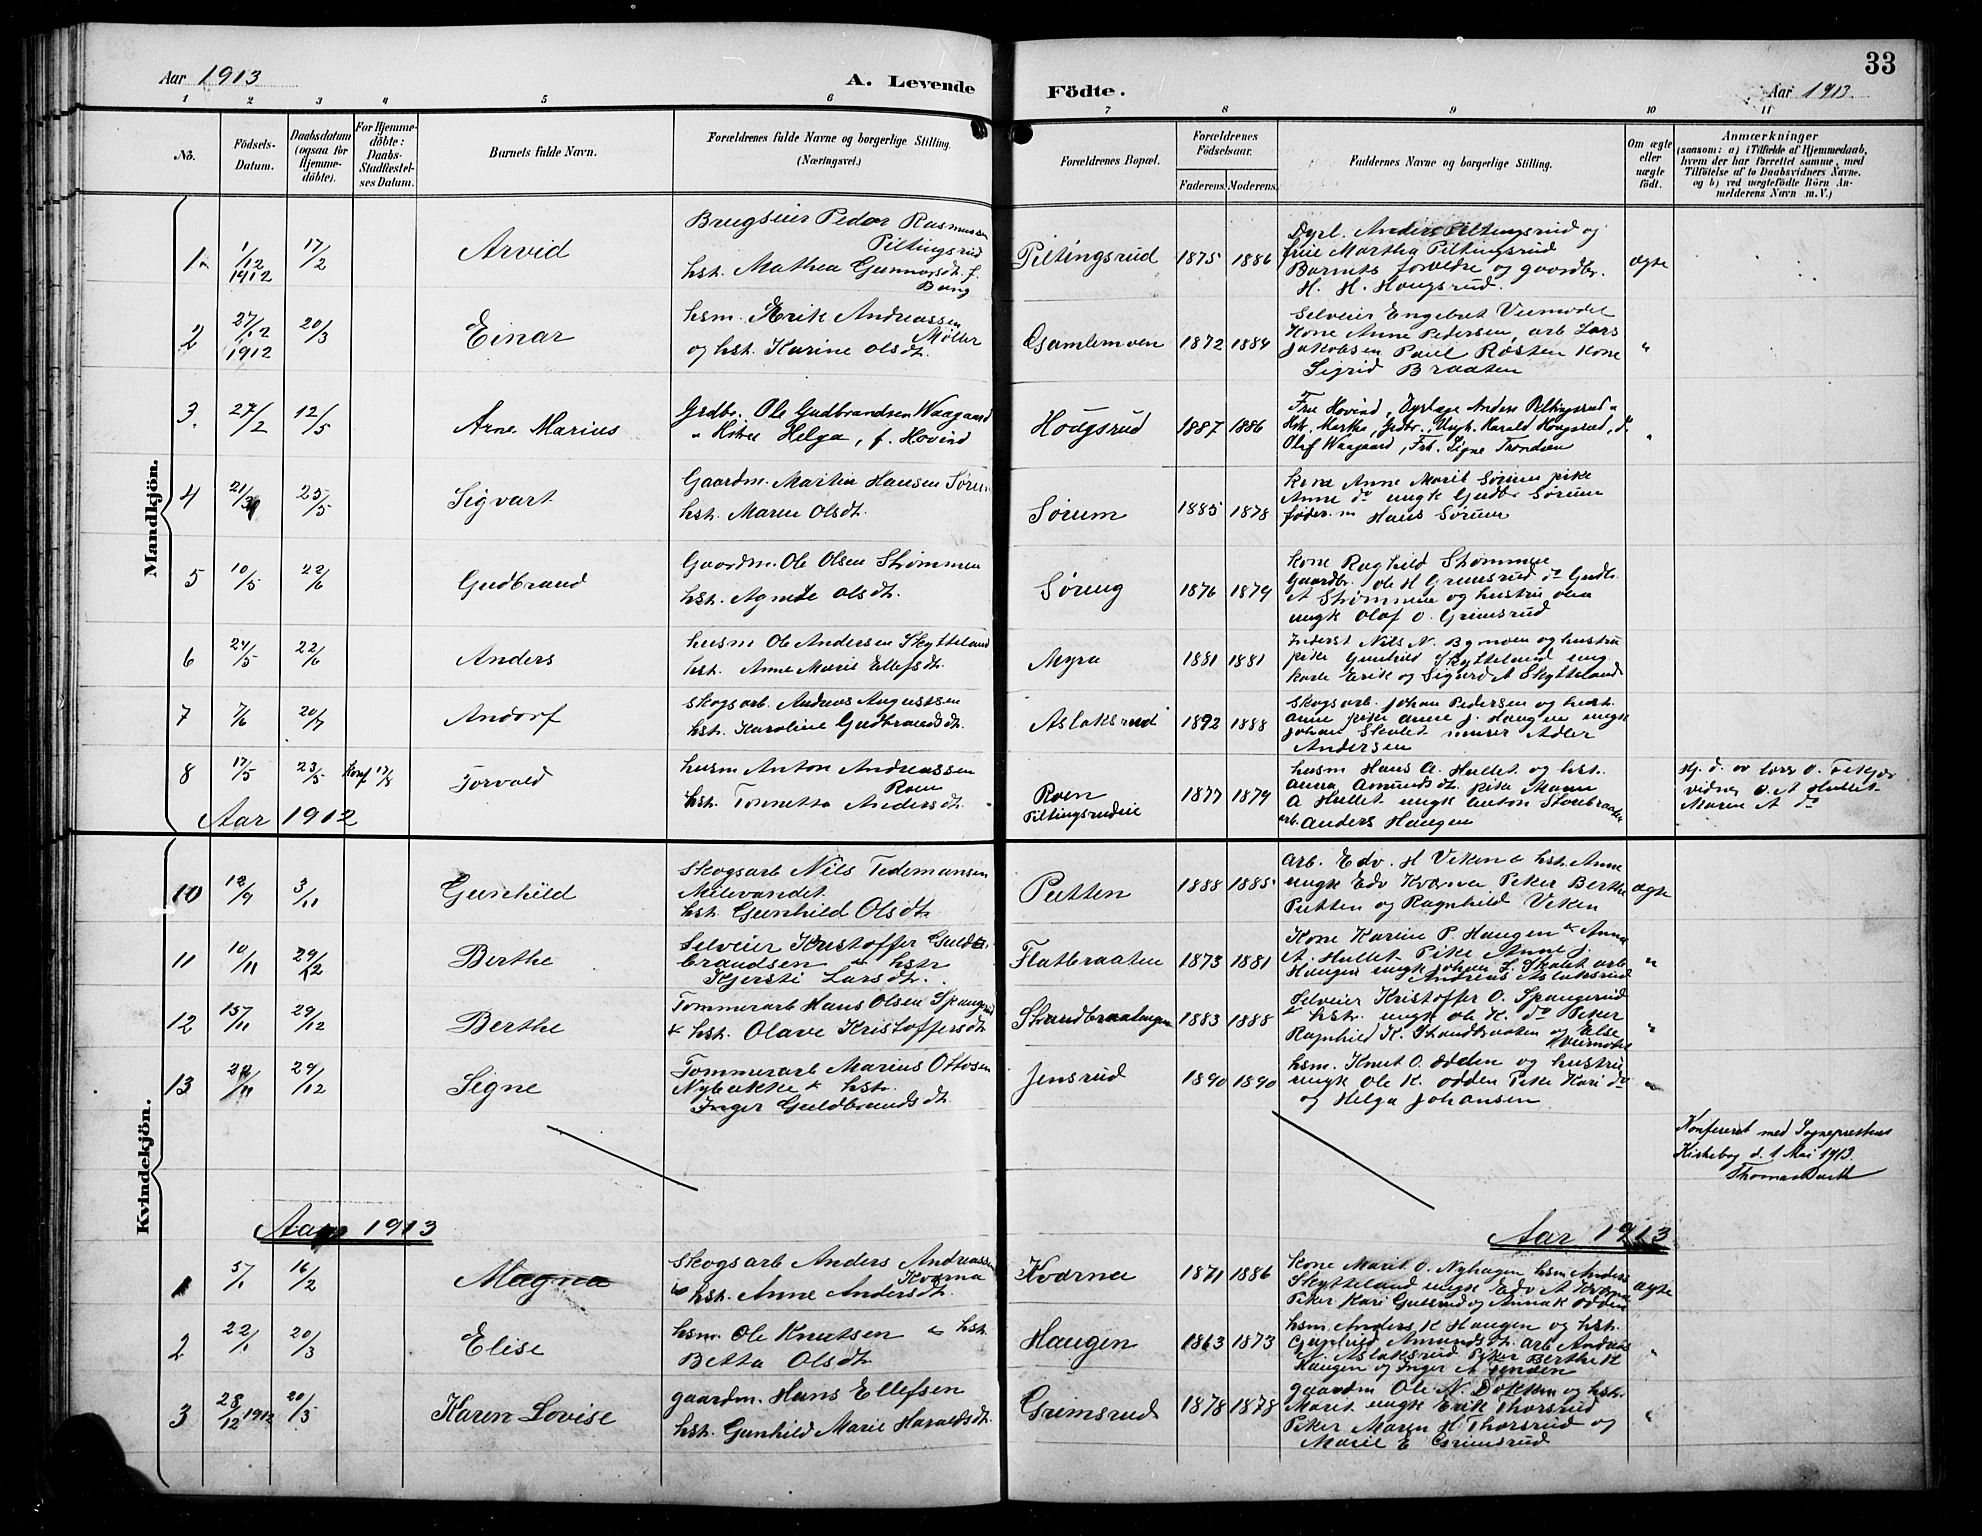 33
Aar 1913
A. Levende
Födte.
Aar 1913.
1 2 3 4 5 6 7 8 9 10 11
No.
Födsels-Datum.
Daabsdatum (ogsaa for Hjemme-döbte).
For Hjemme-döbte: Daabs-Stadfæstel-ses Datum.
Barnets fulde Navn.
Forældrenes fulde Navne og borgerlige Stilling. (Næringsvei.)
Forældrenes Bopæl.
Forældrenes Födselsaar.
Faderens. Moderens.
Faddernes Navne og borgerlige Stilling.
Om ægte eller uægte födt.
Anmærkninger
(saasom: a) i Tilfælde af Hjemmedaab, hvem der har forrettet samme, med Tilföielse af to Daabsvidners Navne, og b) ved uægtefödte Börn An-melderens Navn m. V.)
Mandkjön.
1. 1/12 1912 17/2 Arvid
Brugseier Peder Rasmussen
Piltingsrud
hst. Mathea Gunnarsdt. f.
Bang
Piltingsrud 1875 1886
Dyrl. Anders Piltingsrud og
frue Martha Piltingsrud
Barnets forældre og gaardbr.
H. H. Hougsrud.
ægte
2 27/12 1912 20/3 Einar
hsm. Erik Andreassen
Møller
og hst. Karine Olsdt.
Gamlemoen 1872 1884
Selveier Engebret Veimodet
Kone Anne Pedersen, arb Lars
Jakobsen Paul Røsten Kone
Sigrid Braaten
"
3. 27/2 12/5 Arne Marius
Grdbr. Ole Gudbrandsen Waagaard
" Hstru Helga, f. Hovind
Hougsrud 1887 1886
Frue Hovind, Dyrlæge Anders Piltingsrud "
Hst. Martha, Grdbr., Ungk. Harald Hougsrud, d.
Olaf Waagaard, Frk. Signe Trondsen
"
4 21/3 25/5 Sigvart
Gaardm. Martin Hansen Sørum
hst. Maren Olsdt.
Sørum 1885 1878
Kone Anne Marit Sørum pike
Anne do ungk Gudbr Sørum
føder.m Hans Sørum
5 10/5 22/6 Gudbrand
Gaardm. Ole Olsen Strømmen
hst. Agnete Olsdt.
Søreng 1876 1879
Kone Raghild Strømmen
Gaardbr. Ole H Grimsrud do Gudb.
A Strømmen og hustru Olea
ungk Olaf O. Grimsrud
6 24/5 22/6 Anders
husm Ole Andersen Skytteland
hst. Anne Marie Ellefsdt.
Myra 1881 1881
Inderst Nils N. Bymoen og hustru
pike Gunhild Skytteland ung
karle Erik og Sigurd A Skytteland
7 7/6 20/7 Andorf
Skogsarb. Andreas Augustsen
hst. Karoline Gudbrandsdt.
Aslaksrud 1892 1888
Skogsarb. Johan Pedersen og hust.
Anne pike Anne J. Haugen ungk
Johan Skalet murer Adler
Andersen
8 17/5 23/5 Konf 17/8 Torvald
husm Anton Andreassen
Roen
hst. Tonnetta Andersdt.
Roen
Piltingsrudeie 1877 1879
husm Hans A. Hullet og hst.
Anna Amundsdt. pike Maren
A Hullet ungk Anton Storebraaten
arb. Anders Haugen
Hj. d. av Lars O. Fekjær
vidner O. A Hullet
Maren A do
Aar 1912
Kvindekjön.
10 12/9 3/11 Gunhild
Skogsarb Nils Tidemansen
Milevandet
hst. Gunhild Olsdt.
Putten 1888 1885
arb. Edv. H Veken & hst. Anne
ungk Edv Kværna Piker Berthe
Putten og Ragnhild Veken
ægte
11 10/11 29/12 Berthe
Selveier Kristoffer Guld
brandsen & hst.
Kjersti Larsdt.
Flatbraaten 1873 1881
Kone Karine P. Haugen & Anna
A. Hullet Pike Anne J.
Haugen ungk Johan J. Skalet arb
Andreas Aslaksrud
"
12 15/11 29/12 Berthe
Tømmerarb Hans Olsen Spangrud
& hst. Olave Kristoffersdt.
Strandbraatengen 1883 1888
Selveier Kristoffer O. Spangerud
& hst. ungk Ole K. do Piker
Ragnhild K. Strandbraaten og Else
Hveimodet
"
13 29/12 Signe
Tømmerarb Marius Ottosen
Nybakke & hst.
Inger Guldbrandsdt.
Jensrud 1890 1890
hsm. Knut O. Odden og hustru
ungk Ole K. Odden Pike Kari do
og Helga Johansen
"
Konfereret med Sogneprestens
Kirkebog d. 1 Mai 1913.
Thomas Barth
Aar 1913
Aar 1913
1 5/1 16/2 Magna
Skogsarb Anders Andreassen
Kværna
& hst. Anne Andersdt.
Kværna 1871 1886
Kone Marit O. Nyhagen hsm Anders
Skytteland ungk Edv A Kværna
Piker Kari Gulsrud og Anna K Odden
ægte
2 22/1 20/3 Elise
hsm. Ole Knutsen & hst.
Betta Olsdt.
Haugen 1863 1873
hsm. Anders K Haugen og hst.
Gunhild Amundsdt. arb Andreas
A. Aslaksrud Piker Berthe K
Haugen og Inger A
"
3 28/12 1912 20/5 Karen Lovise
gaardm. Hans Ellefsen
hst. Gunhild Marie Haraldsdt.
Grimsrud 1878 1878
gaardm Ole N. Dokken og hst.
Marit ungk Erik Thorsrud
Piker Maren H Thorsrud og
Marie E Grimsrud
"